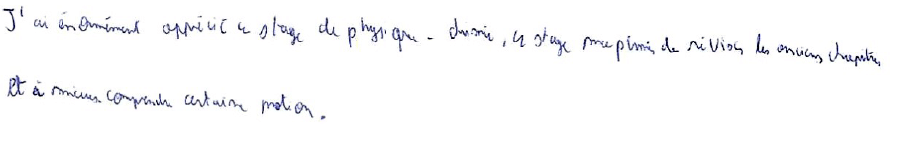 J'ai énormément apprécié ce stage de physique - chimie, ce stage m'a permis de réviser les anciens chapitres
Et à mieux comprendre certaine notion.